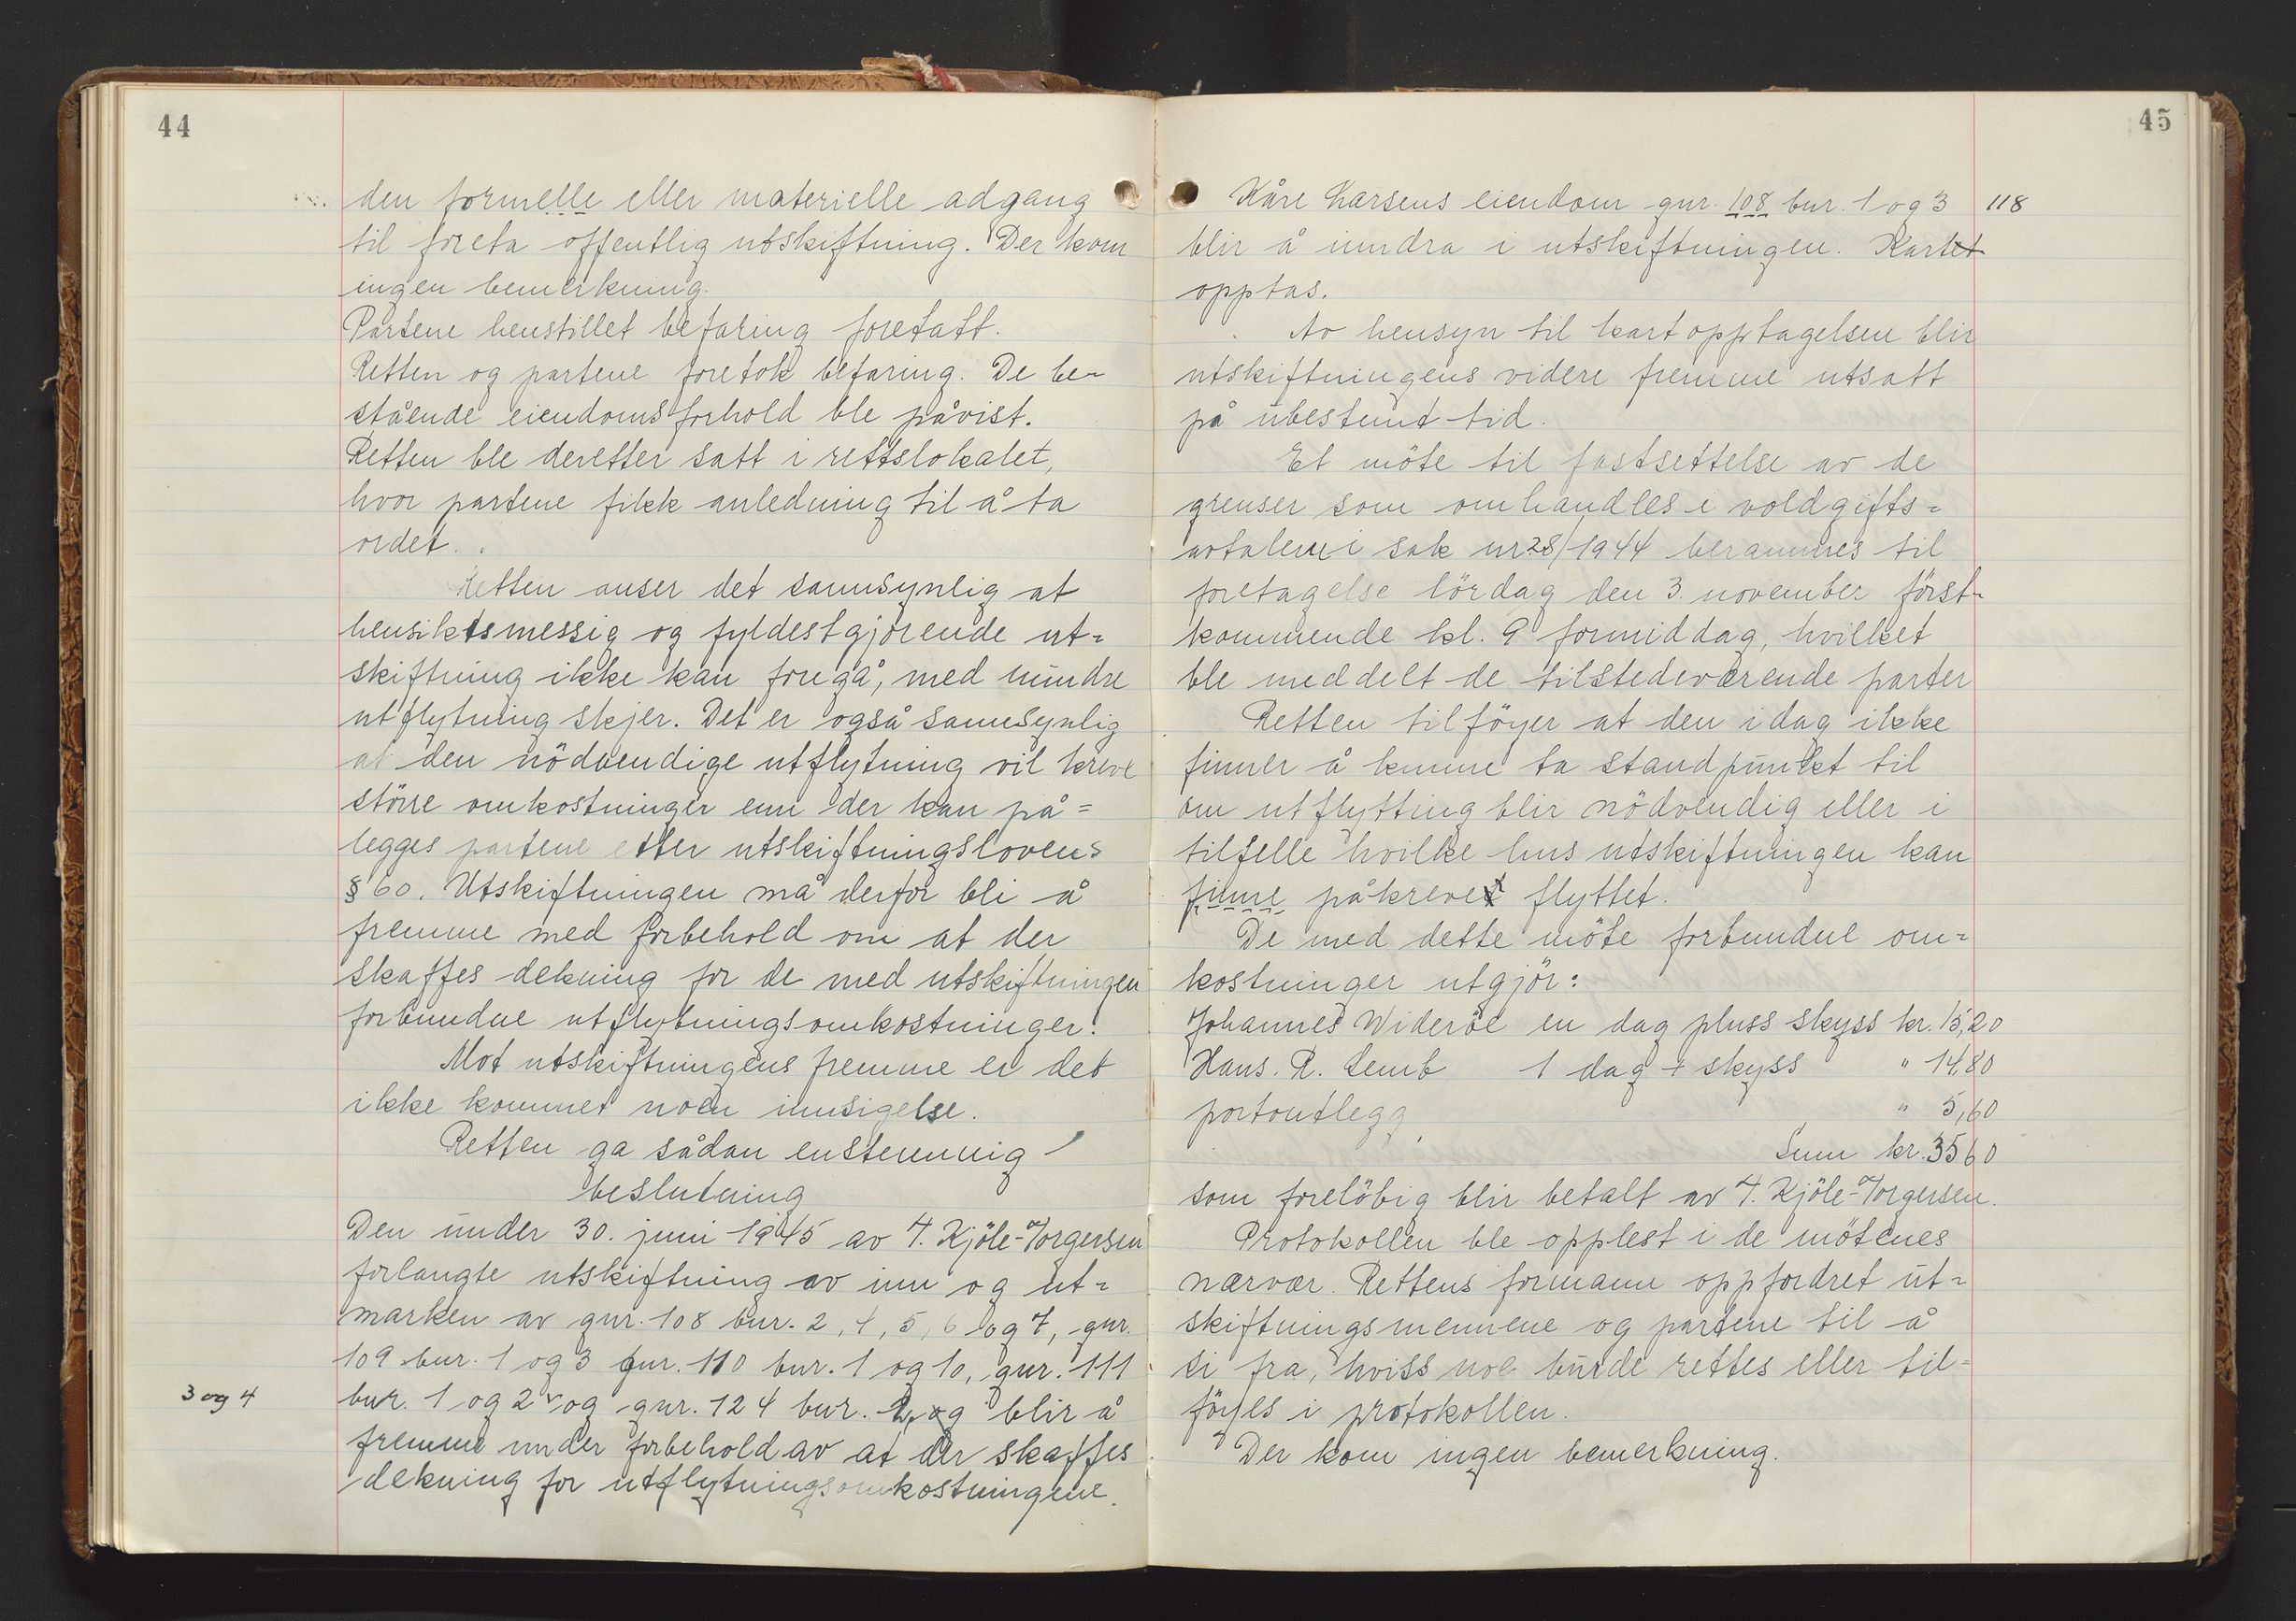 44
den formelle eller materielle adgang
til foreta offentlig utskiftning. Der kom
ingen bemerkning.
Partene henstillet befaring foretatt.
Retten og partene foretok befaring. De be-
stående eiendomsforhold ble påvist.
Retten ble deretter satt i rettslokalet,
hvor partene fikk anledning til å ta
ordet.
Retten anser det sannsynlig at
hensiktsmessig og fyldestgjørende ut=
skiftning ikke kan foregå, med mindre
utflytning skjer. Det er også sannsynlig
at den nödvendige utflytning vil kreve
större omkostninger enn der kan på=
legges partene etter utskiftningslovens
§ 60. Utskiftningen må derfor bli å
fremme med forbehold om at der
skaffes dekning for de med utskiftningen
forbundne utflytningsomkostninger.
Mot utskiftningens fremme er det
ikke kommet noen innsigelse.
Retten ga sådan enstemmig
beslutning
Den under 30. juni 1945 av T. Kjöle-Torgersen
forlangte utskiftning av inn og ut=
marken av gnr. 108 bnr. 2, 4, 5, 6 og 7, gnr.
109 bnr. 1 og 3 gnr. 110 bnr. 1 og 10, gnr. 111
3 og 4
bnr. 1 og 2 og gnr. 124 bnr. 2, og blir å
fremme under forbehold av at der skaffes
dekning for utflytningsomkostningene.
45
Kåre Larsens eiendom gnr. 108 bnr. 1 og 3 118
blir å inndra i utskiftningen. Kartet
opptas.
Av hensyn til kartopptagelsen blir
utskiftningens videre fremme utsatt
på ubestemt tid.
Et möte til fastsettelse av de
grenser som omhandles i voldgifts=
avtalen i sak nr 28/1944 berammes til
foretagelse lördag den 3. november först-
kommende kl. 9 formiddag, hvilket
ble meddelt de tilstedeværende parter
Retten tilföyer at den idag ikke
finner å kunne ta standpunkt til
om utflytting blir nödvendig eller i
tilfelle hvilke hus utskiftningen kan
finne påkrevet flyttet.
De med dette möte forbundne om=
kostninger utgjör:
Johannes Wideröe en dag pluss skyss kr. 15,20
Hans. R. Lemb 1 dag + skyss " 14,80
portoutlegg " 5,60
Sum kr. 35 60
som forelöbig blir betalt av T. Kjöle-Torgersen.
Protokollen ble opplest i de mötenes
nærvær. Rettens formann oppfordret ut=
skiftningsmennene og partene til å
si fra, hviss noe burde rettes eller til=
föyes i protokollen.
Der kom ingen bemerkning.